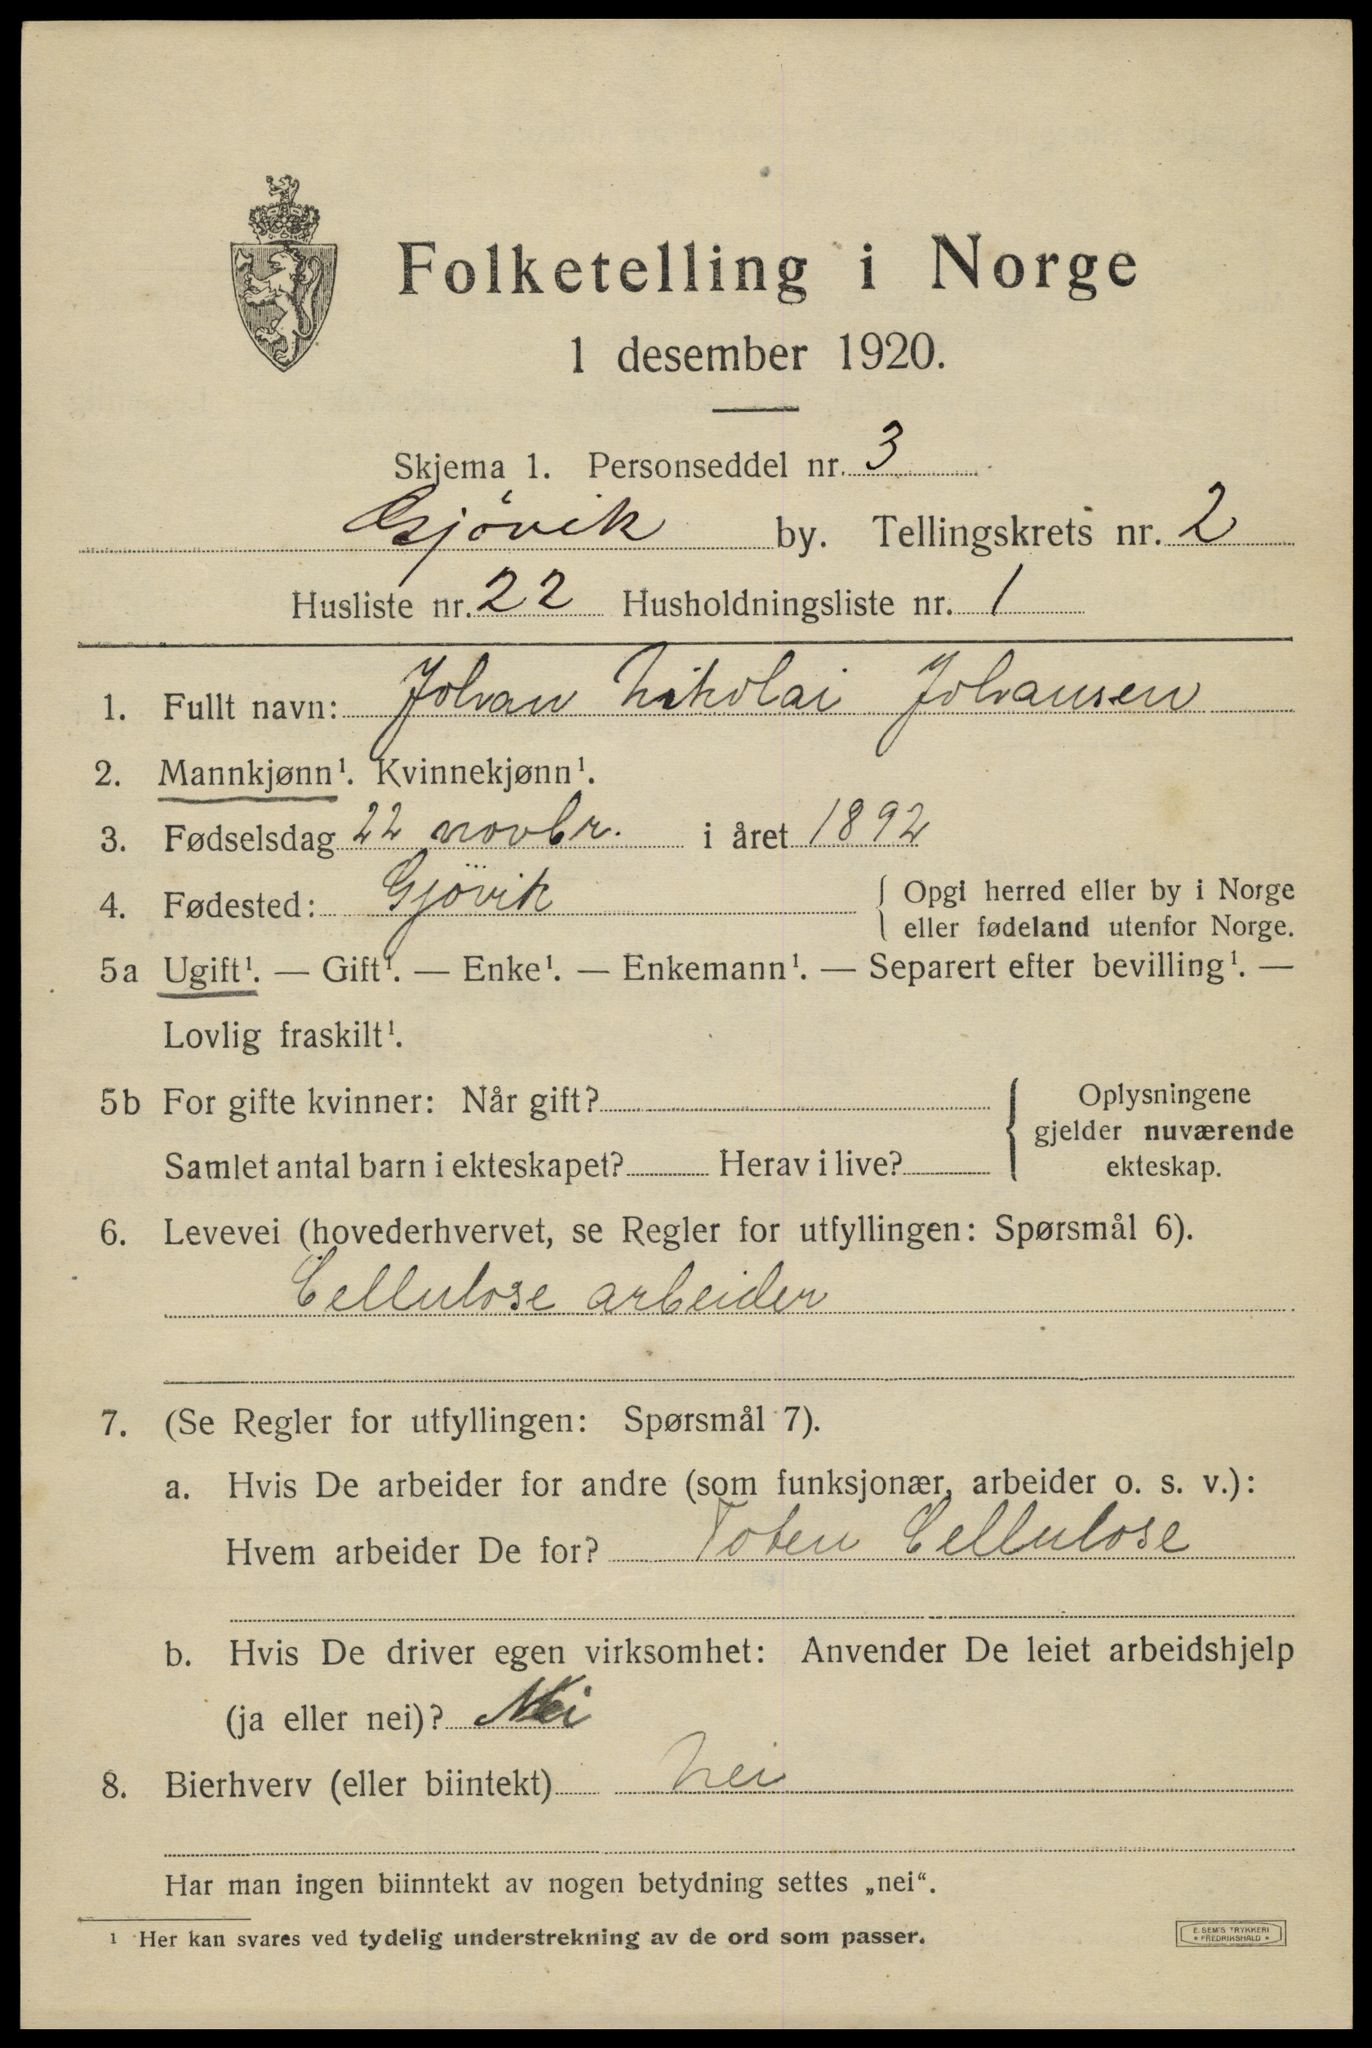 Folketelling i Norge
1 desember 1920.
Skjema 1. Personseddel nr. 3
Gjövik by. Tellingskrets nr. 2
Husliste nr. 22 Husholdningsliste nr. 1
1. Fullt navn: Johan Nikolai Johansen
2. Mannkjønn¹. Kvinnekjønn¹.
3. Fødselsdag 22 novbr. i året 1892
4. Fødested: Gjövik { Opgi herred eller by i Norge
eller fødeland utenfor Norge.
5a Ugift¹. — Gift¹. — Enke¹. — Enkemann¹. — Separert efter bevilling¹. —
Lovlig fraskilt¹.
5b For gifte kvinner: Når gift? { Oplysningene
gjelder nuværende
Samlet antal barn i ekteskapet? Herav i live? ekteskap.
6. Levevei (hovederhvervet, se Regler for utfyllingen: Spørsmål 6).
Cellulose arbeider
7. (Se Regler for utfyllingen: Spørsmål 7).
a. Hvis De arbeider for andre (som funksjonær, arbeider o. s. v.):
Hvem arbeider De for? Toten Cellulose
b. Hvis De driver egen virksomhet: Anvender De leiet arbeidshjelp
(ja eller nei)? Nei
8. Bierhverv (eller biintekt) nei
Har man ingen biinntekt av nogen betydning settes „nei“.
¹ Her kan svares ved tydelig understrekning av de ord som passer.
E. SEM'S TRYKKERI
* FREDRIKSHALD *